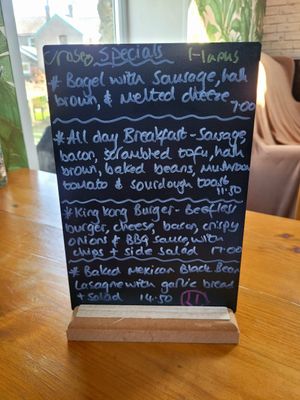 Specials
* Bagel with Sausage, hash
brown, & melted cheese
7.00
* All day Breakfast - Sausage,
bacon, scrambled tofu, hash
brown, baked beans, mushroom
tomato & sourdough toast
11.50
* King Kong Burger - Beefless
burger, cheese, bacon, crispy
onions & BBQ sauce, with
chips + side salad 17.00
* Baked Mexican Black Bean
Lasagne with garlic bread
+ salad 14.50